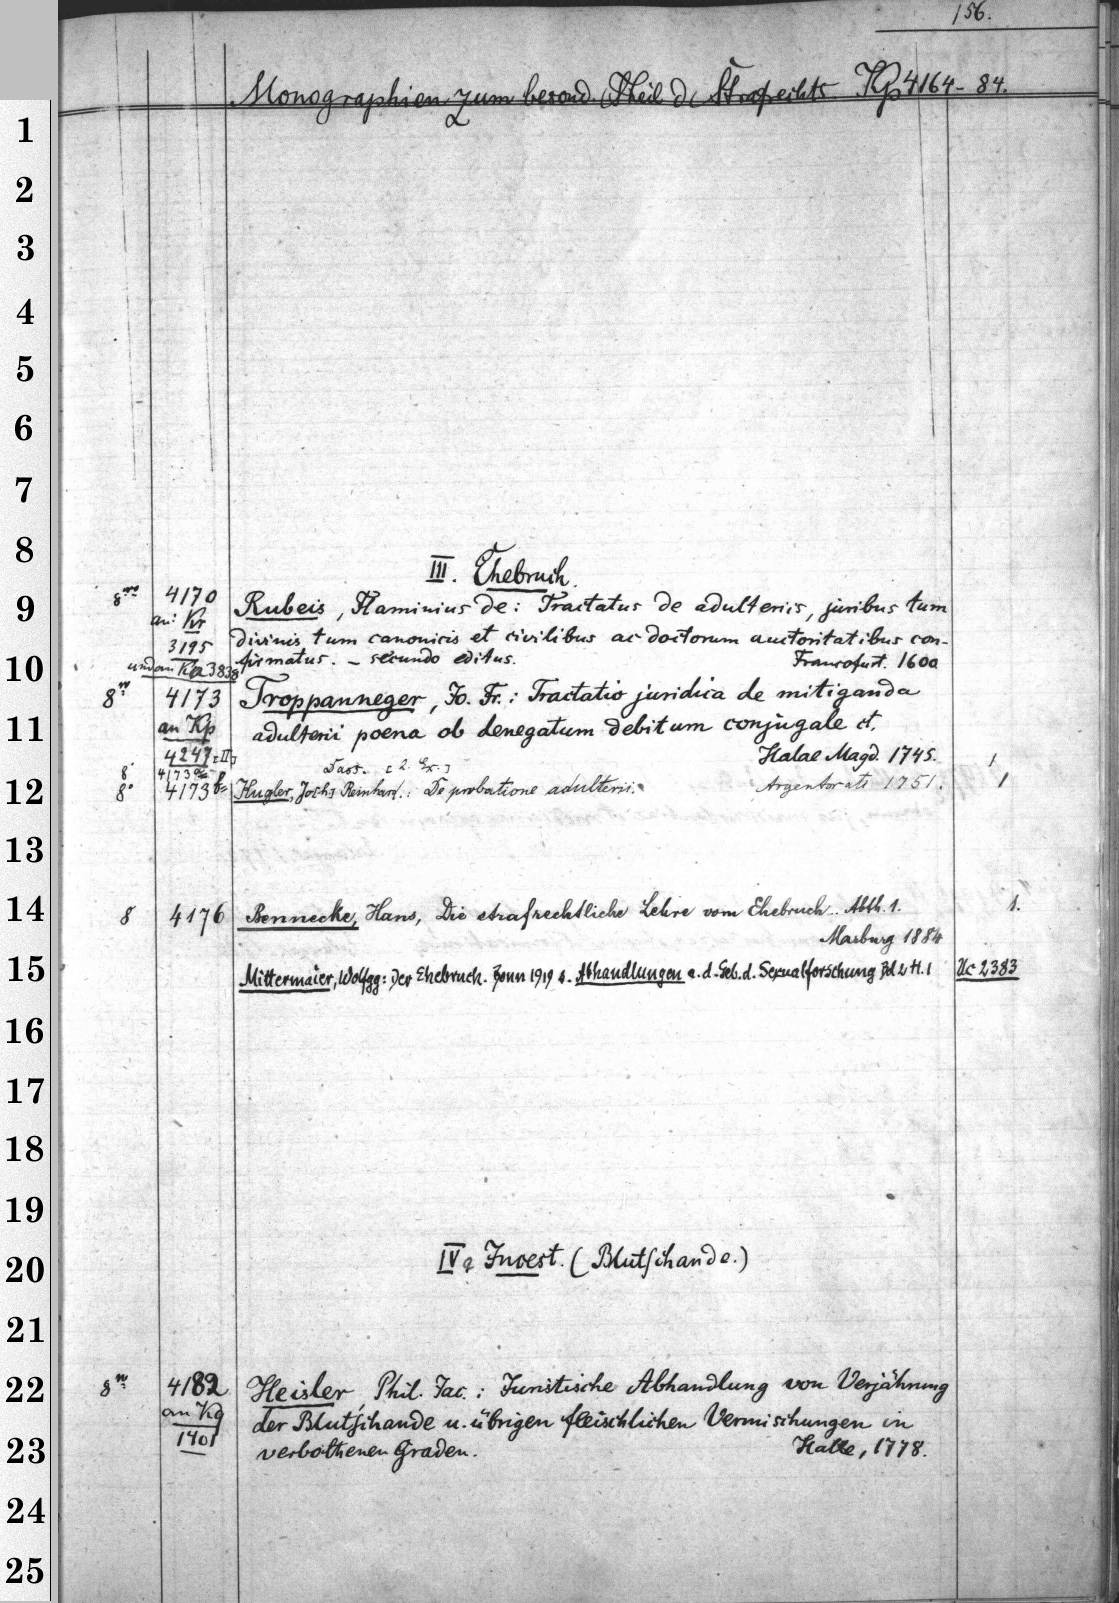 156.
Monographien zum besond. Theil d. Strafrechts Kp 4164-84.
1
2
3
4
5
6
7
8
III. Ehebruch.
9
8° 4170 Rubeis, Flaminius de: Tractatus de adulteriis, juribus tum
an: Kr
3195 divinis tum canonicis et civilibus ac doctorum auctoritatibus con-
10
und an Ka 3838 firmatus. - secundo editus. Francofurt. 1600
8° 4173 Troppanneger, Jo. Fr.: Tractatio juridica de mitiganda
11
an Kp adulterii poena ob denegatum debitum conjugale et.
4247 [II] Halae Magd. 1745.
8 4173 a Dass. [2. Ex.] 1
12
8° 4173 b Kugler, Jo[h.] Reinhard.: De probatione adulterii. Argentorati 1751. 1
13
14
8 4176 Bennecke, Hans, Die strafrechtliche Lehre vom Ehebruch.. Abth. 1. 1.
Marburg 1884
15
Mittermaier, Wolfgg: Der Ehebruch. Bonn 1919 s. Abhandlungen a. d. Geb. d. Sexualforschung Bd 2 H. 1 Uc 2383
16
17
18
19
IV. Incest. (Blutschande.)
20
21
22
8° 4182 Heisler Phil. Jac.: Juristische Abhandlung von Verjährung
an Kg der Blutschande u. übrigen fleischlichen Vermischungen in
23
1401 verbothenen Graden. Halle, 1778.
24
25